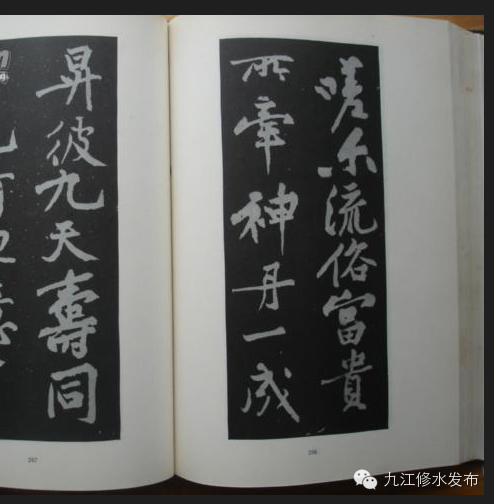 嗟尔流俗富貴
所牽神丹一成
昇彼九天壽同
267
266
九江修水发布